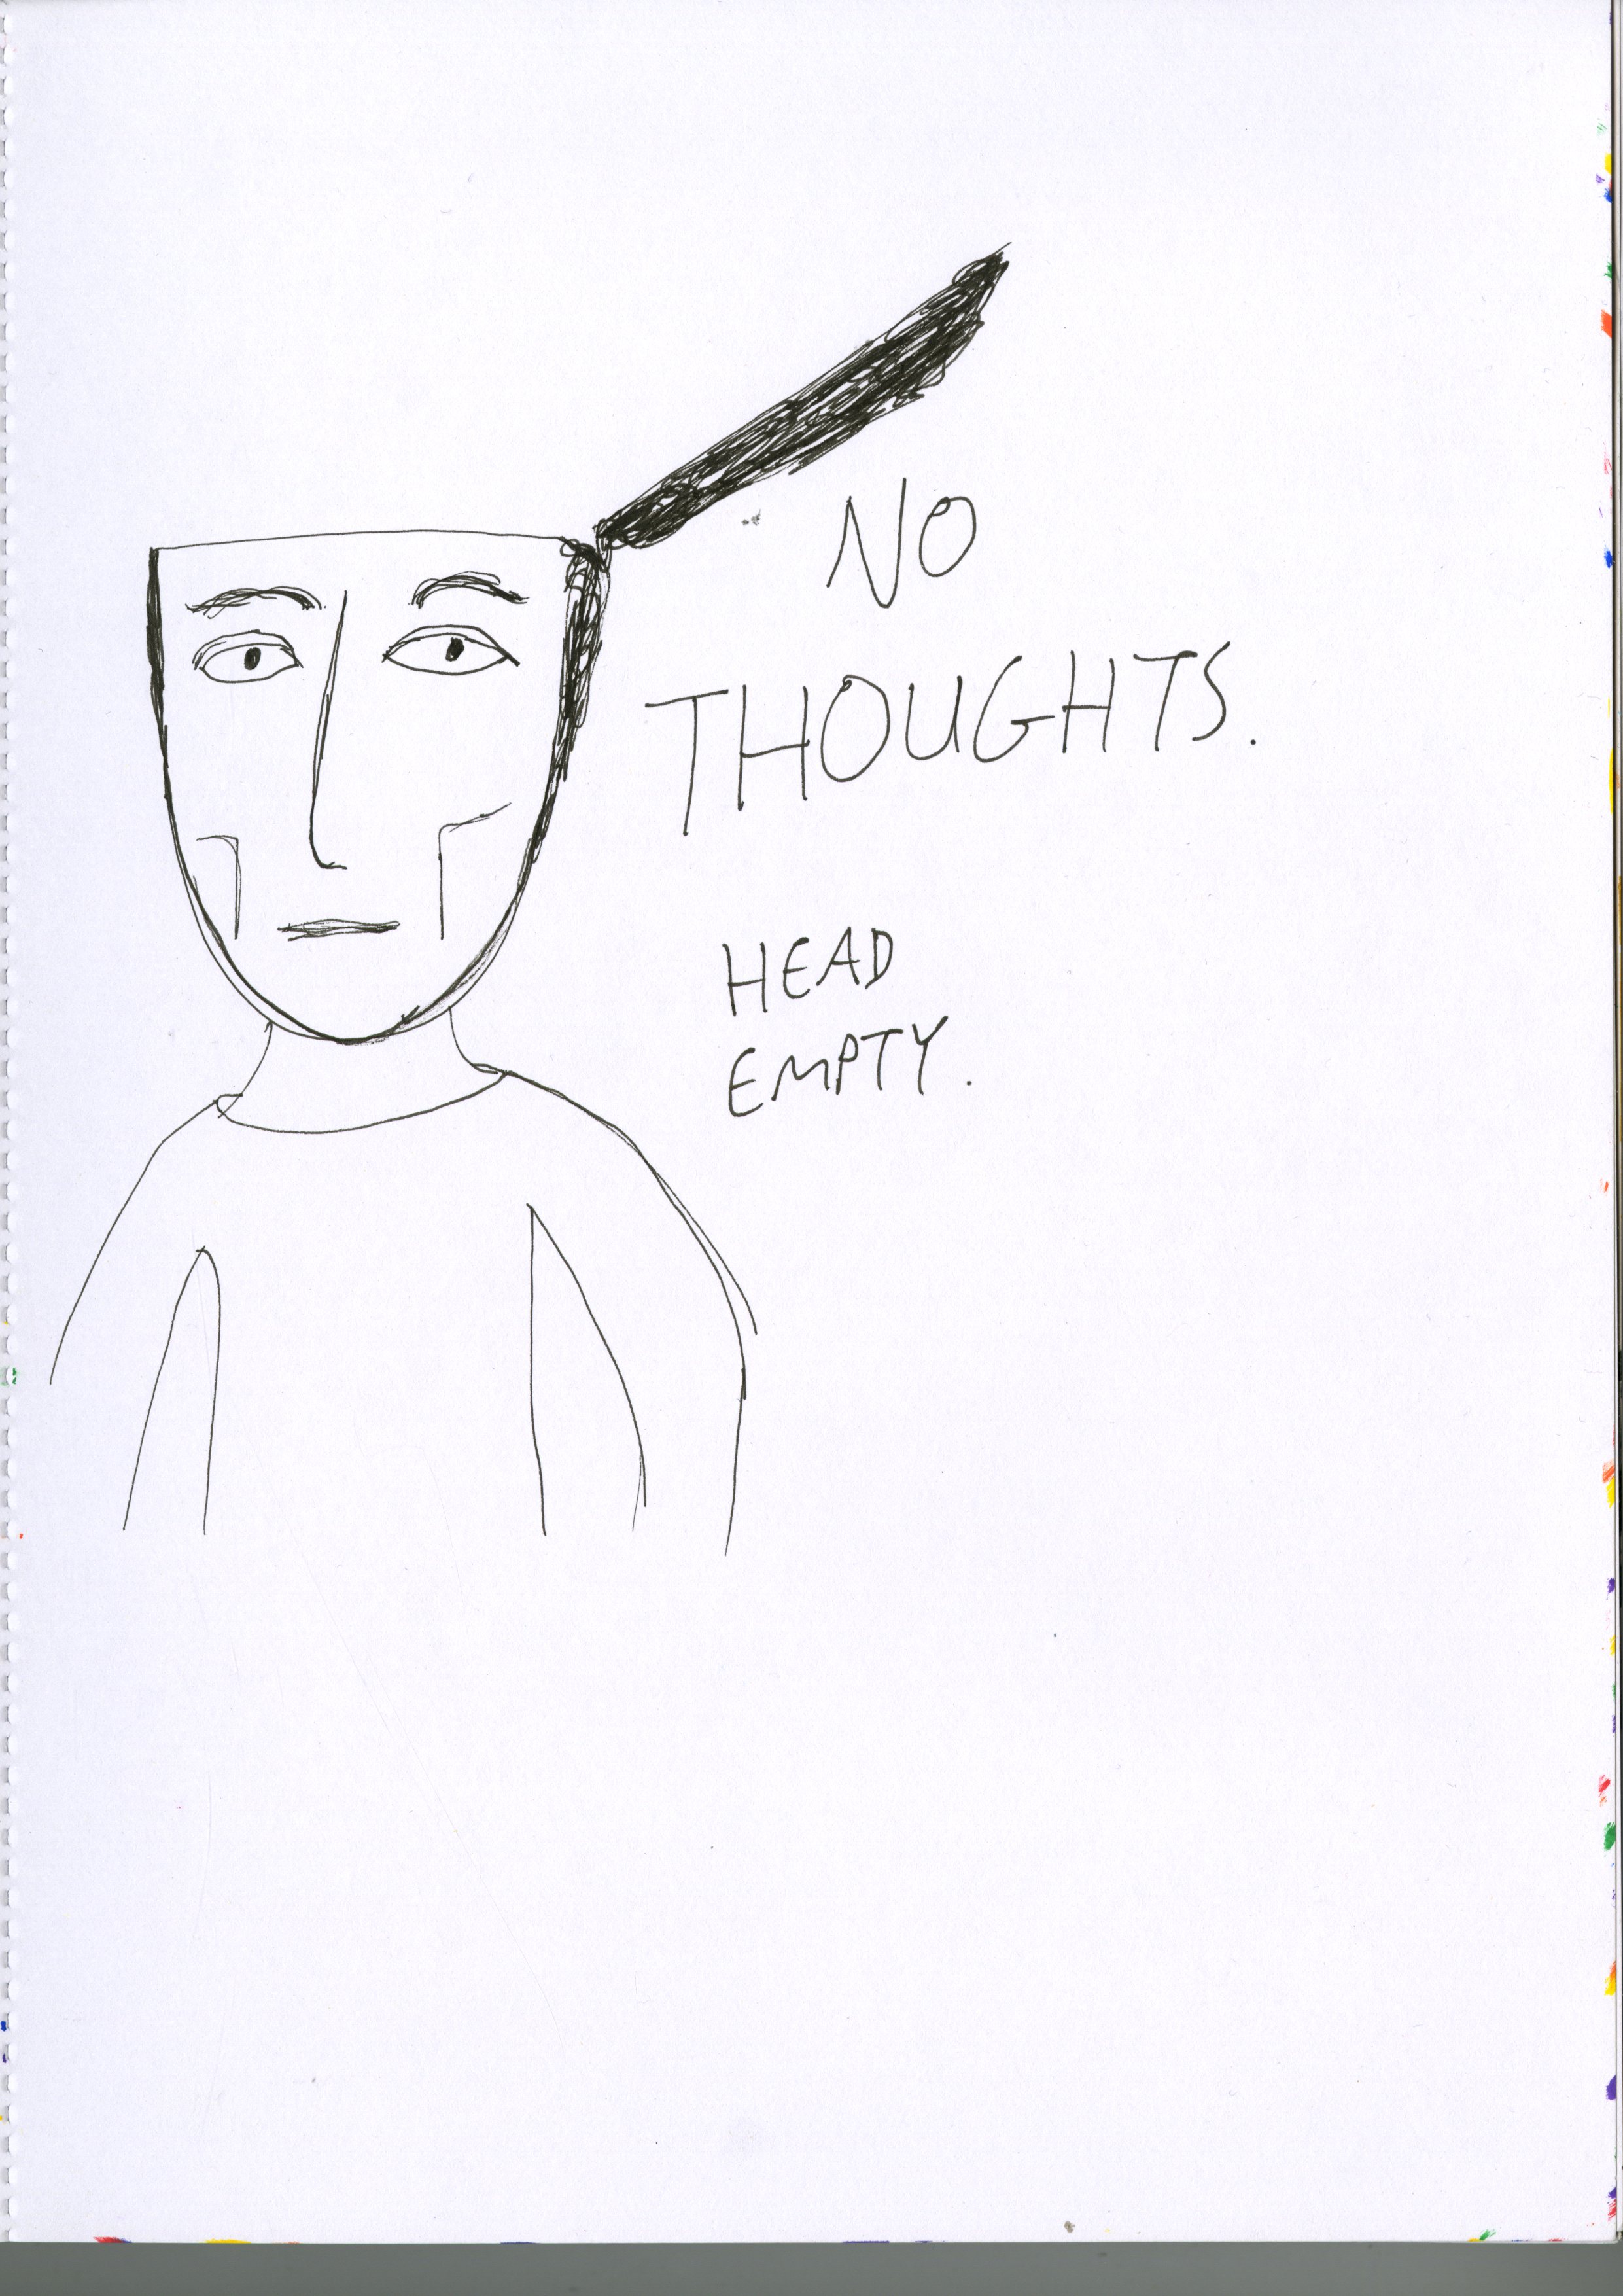 NO
THOUGHTS.
HEAD
EMPTY.